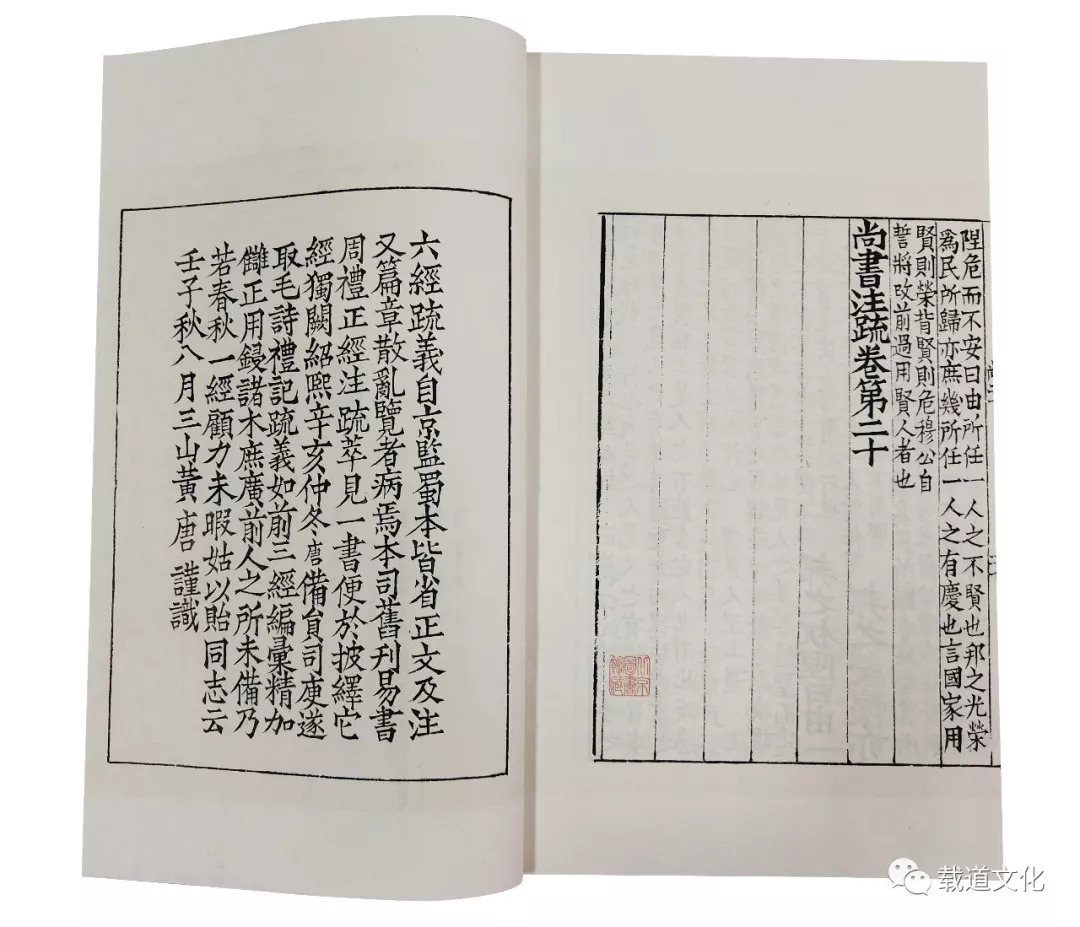 陧危而不安曰由所任一人之不賢也邦之光榮
爲民所歸亦庶幾所任一人之有慶也言國家用
賢則榮背賢則危穆公自
誓將改前過用賢人者也
尚書注疏卷第二十
六經疏義自京監蜀本皆省正文及注
又篇章散亂覽者病焉本司舊刊易書
周禮正經注疏萃見一書便於披繹它
經獨闕紹熙辛亥仲冬唐備員司庾遂
取毛詩禮記疏義如前三經編彙精加
讎正用鋟諸木庶廣前人之所未備乃
若春秋一經顧力未暇姑以貽同志云
壬子秋八月三山黃唐謹識
载道文化